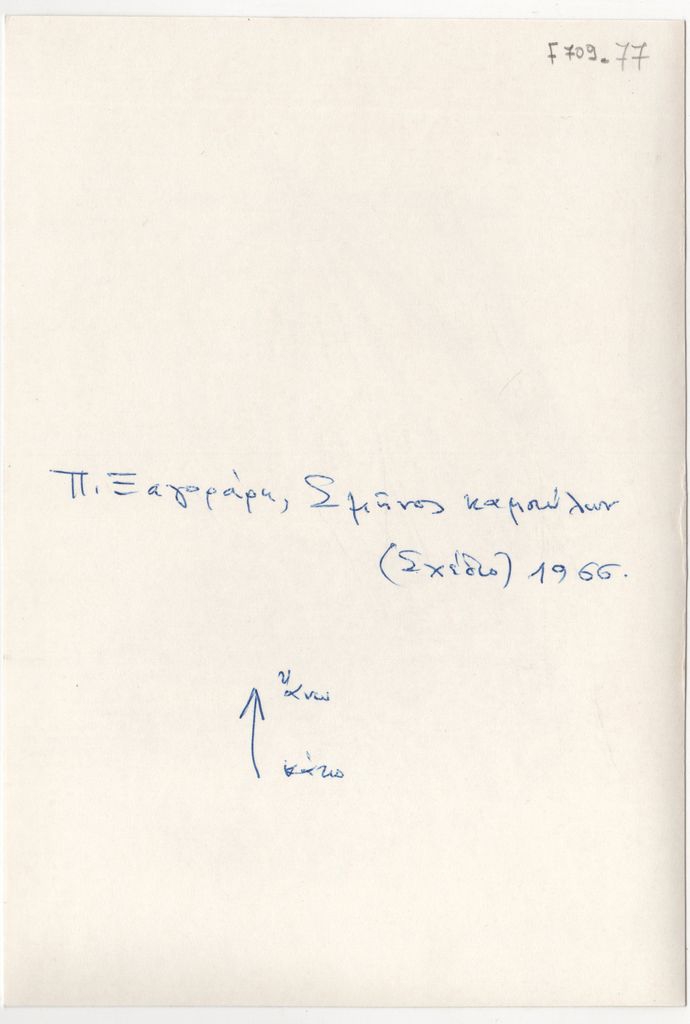 F 709-77
Π. Ξαγοράρη, Σμῆνος καμπύλων
(Σχέδιο) 1966.
ἄνω
κάτω